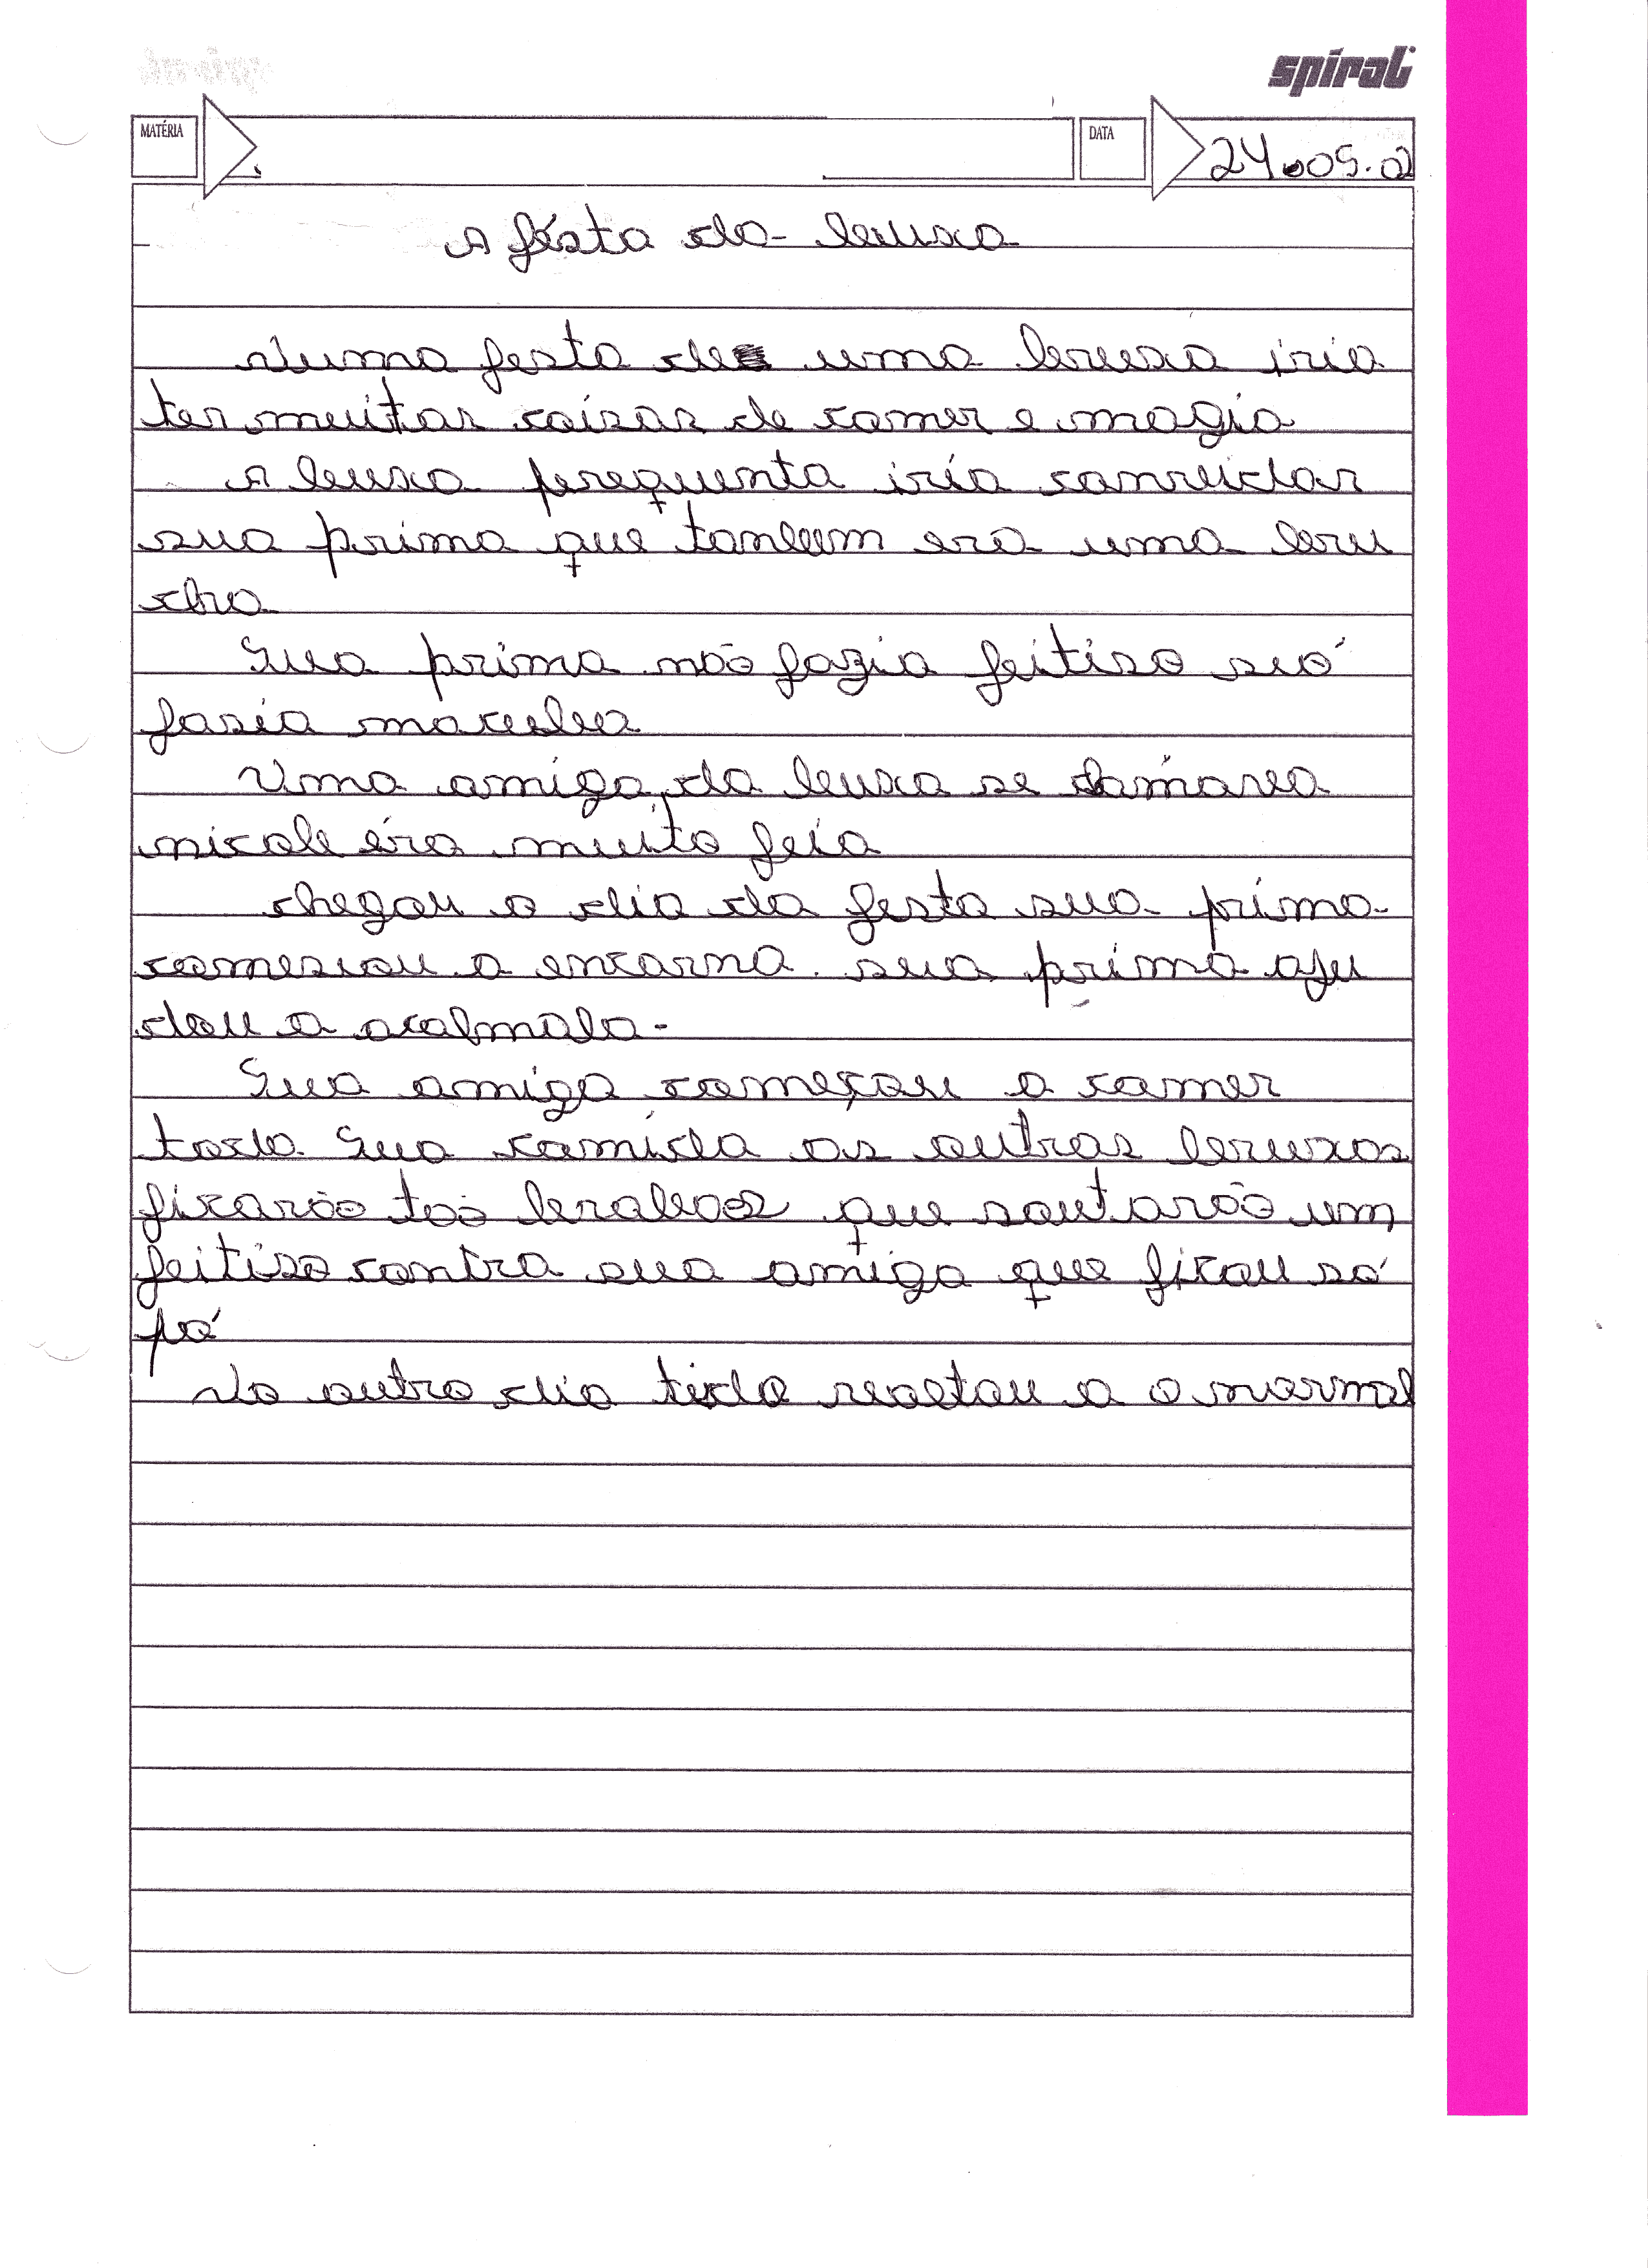 spiral
MATÉRIA DATA 24.05.02
A festa da buxa
Numa festa de uma bruxa iria
ter muitas coisas de comer e magia
A buxa perequenta iria convidar
sua prima que tanbem era uma bru
xa
Sua prima não fazia feitiso suó
fasia
Uma amiga da buxa se
nicole éra muito feia
chegou o dia da festa sua prima
comesou a sua prima aju
dou a acalmala
Sua amiga começou a comer
toda Sua comida as outras bruxas
ficarão tão brabas que soutarão um
feitiso contra sua amiga que ficou só
pó
No outro dia voltou a o normal